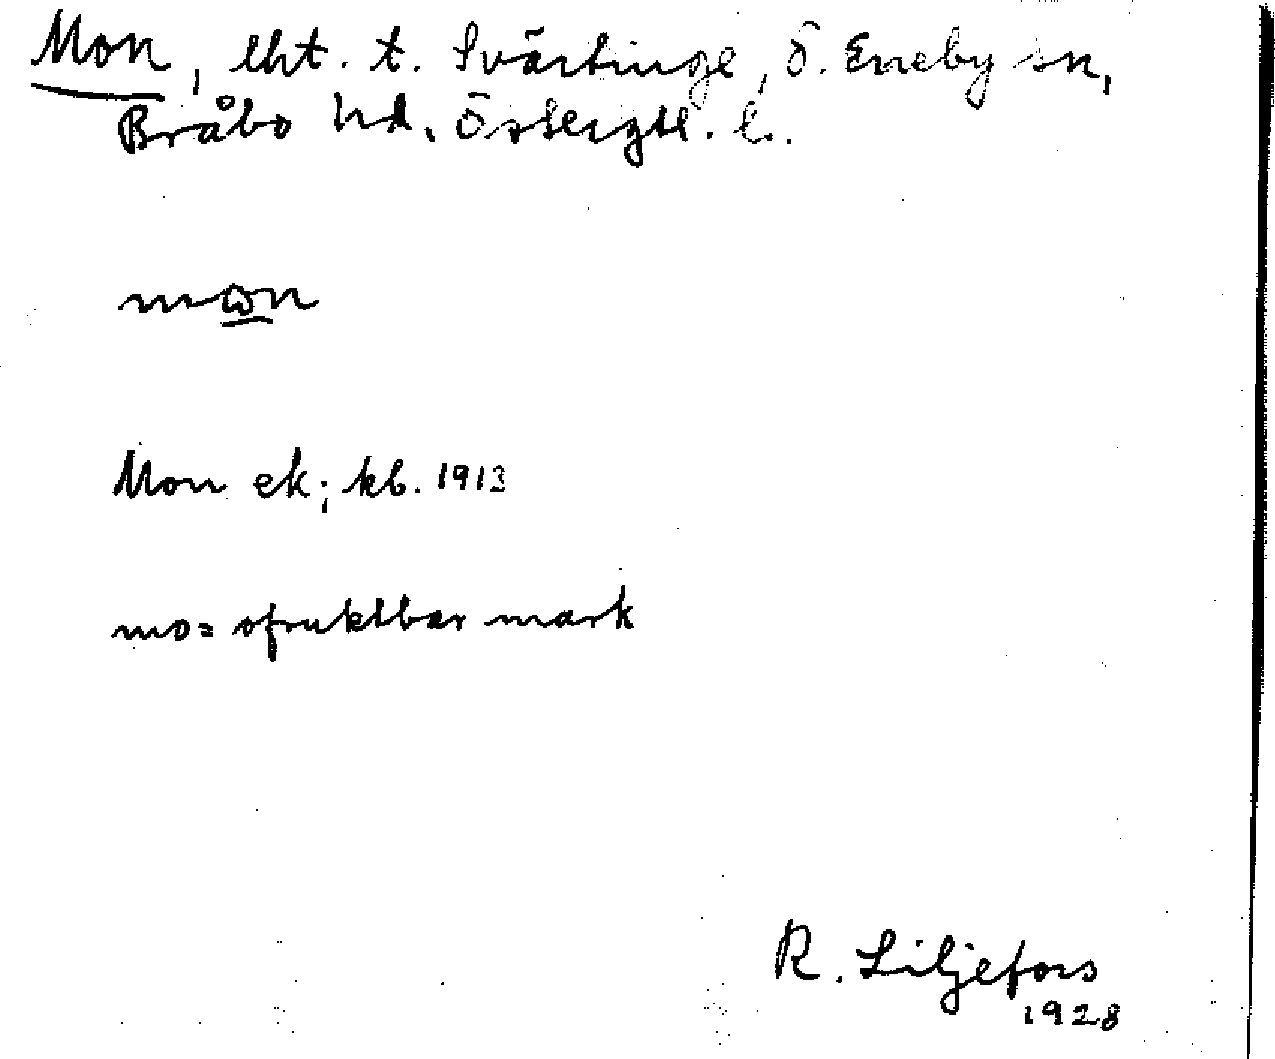 Mon, lht. t. Svärtinge, Ö. Eneby sn,
Bråbo hd. Östergtl. l.
mon
Mon ek; kb. 1913
mo = ofruktbar mark
R. Liljefors
1928